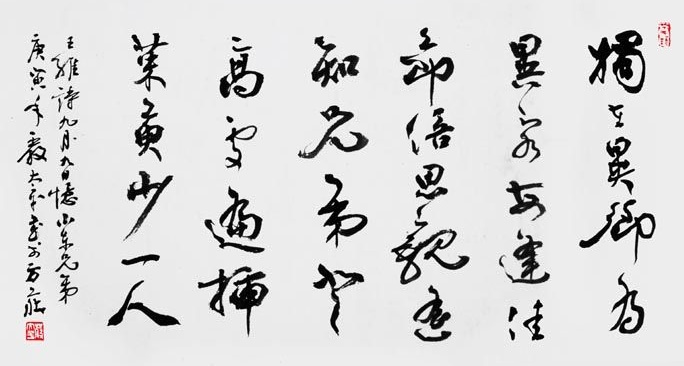 獨在異鄉為
異客每逢佳
節倍思親遙
知兄弟登
高處遍插
茱萸少一人
王維詩九月九日憶山東兄弟
庚寅年